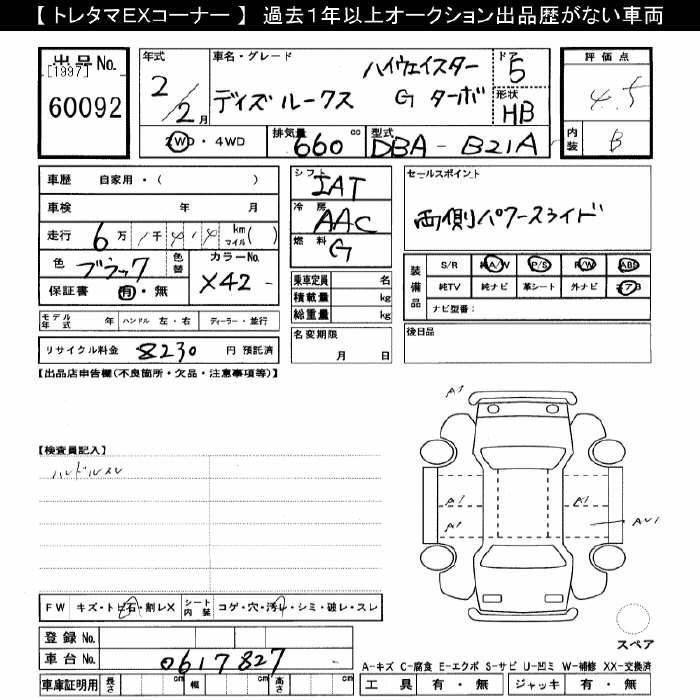 【 トレタマEXコーナー 】 過去1年以上オークション出品歴がない車両
出品 No.
[1997]
60092
年式
2／2月
車名・グレード
ハイウェイスター
デイズルークス G ターボ
ドア
5
形状
HB
評価点
4.5
内装
B
2WD・4WD
排気量
660 cc
型式
DBA - B21A
車歴 自家用・( )
車検 年 月
走行 6万 1千 km マイル( )
色 ブラック
色替
カラーNo.
X42 -
保証書 有・無
シフト
IAT
冷房
AAC
燃料
G
乗車定員 名
積載量 kg
総重量 kg
セールスポイント
両側パワースライド
装備品
S/R 純A/W P/S P/W ABS
純TV 純ナビ 革シート 外ナビ エアB
ナビ型番：
モデル年式 年 ハンドル 左・右 ディーラー・並行
名変期限
月 日
後日品
リサイクル料金 8230 円 預託済
【出品店申告欄(不良箇所・欠品・注意事項等)】
【検査員記入】
ハンドルスレ
A1
A1
A1
A1
AU1
FW キズ・トビ石・割レX
シート内装 コゲ・穴・汚レ・シミ・破レ・スレ
登録 No.
車台 No. 0617827
車庫証明用 長さ cm 幅 cm 高さ cm
スペア
A-キズ C-腐食 E-エクボ S-サビ U-凹ミ W-補修 XX-交換済
工具 有・無 ジャッキ 有・無